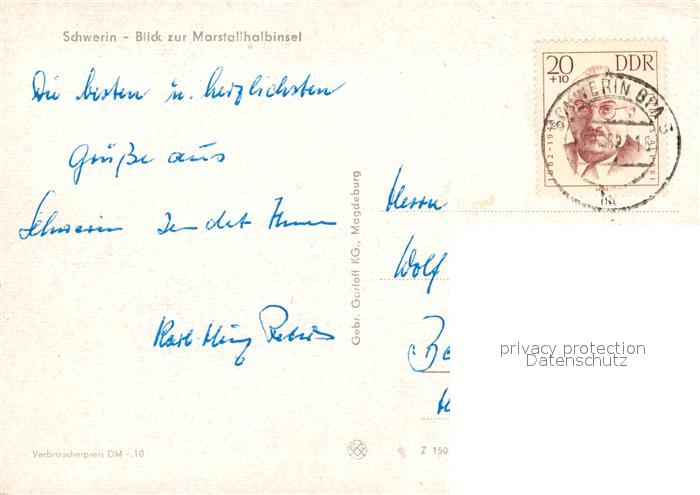 Schwerin - Blick zur Marstallhalbinsel
20
+10
DDR
SCHWERIN
1882-19
Die besten u. herzlichsten
Grüße aus
Schwerin sendet Ihnen
Karl Heinz
Gebr. Garloff KG., Magdeburg
Herrn
Wolf
privacy protection
Datenschutz
Verbraucherpreis DM -.10
Z 150